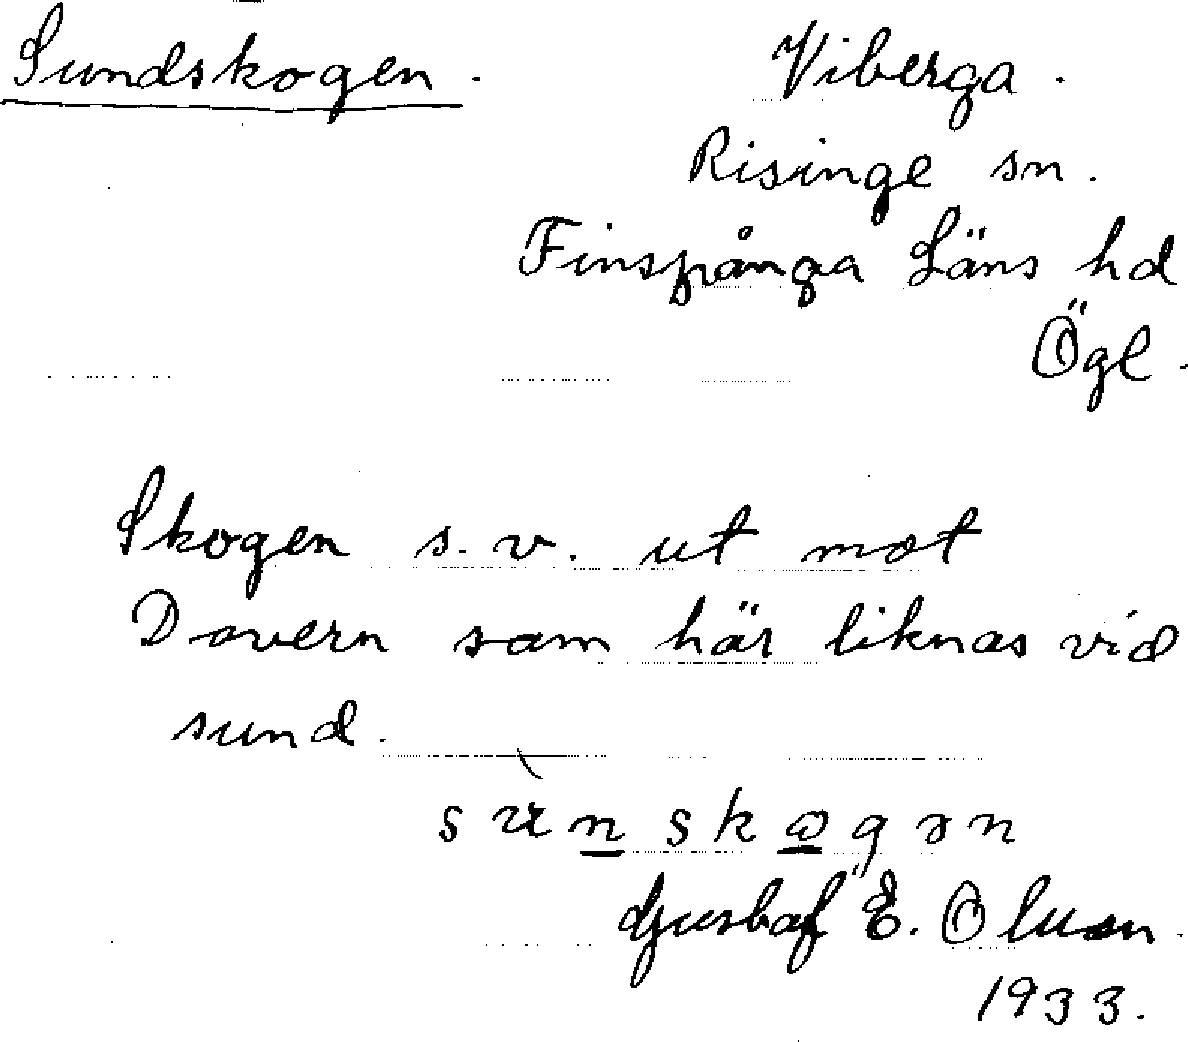 Sundskogen. Viberga.
Risinge sn.
Finspånga Läns hd
Ögl.
Skogen s.v. ut mot
Dovern som här liknas vid
sund.
Gustaf E. Olsson
1933.